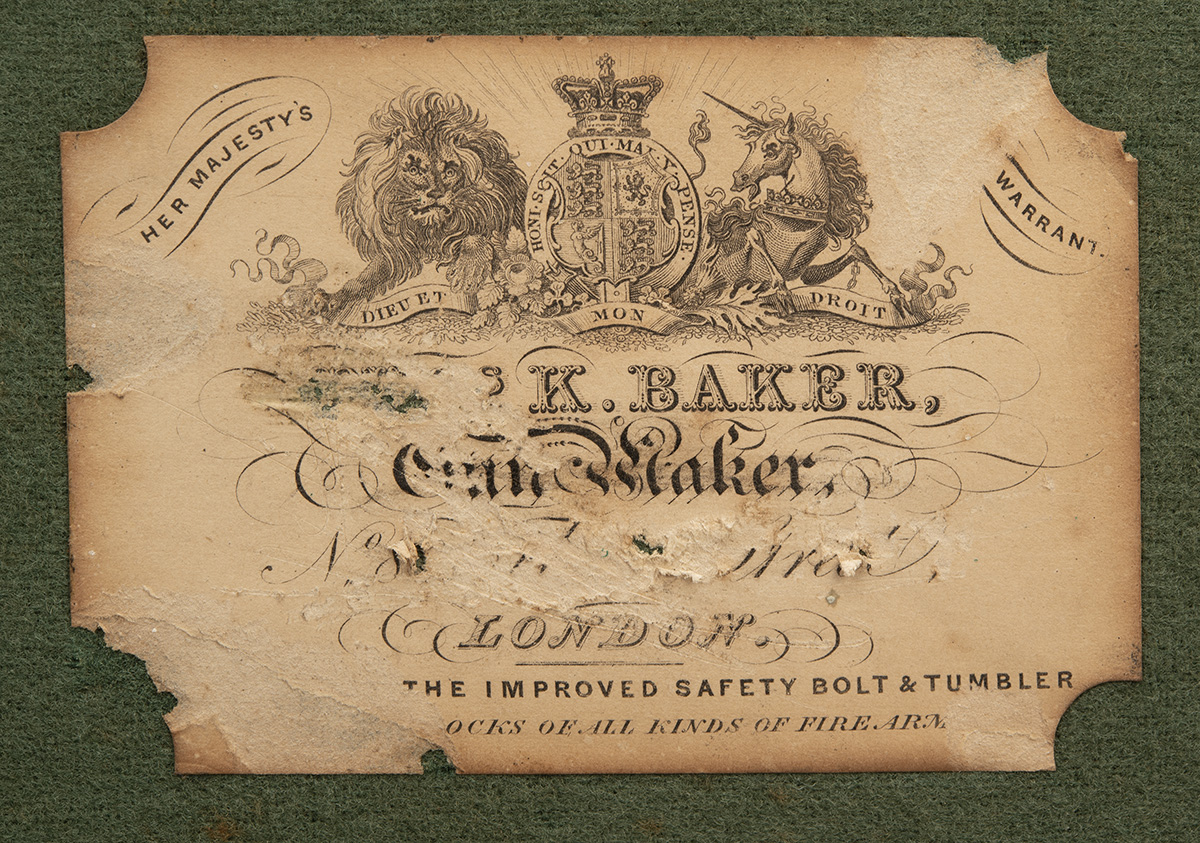 HER MAJESTY'S
WARRANT.
HONI·SOIT·QUI·MAL·Y·PENSE.
DIEU ET MON DROIT
K. BAKER,
Gun Maker,
No. Street,
LONDON.
THE IMPROVED SAFETY BOLT & TUMBLER
OCKS OF ALL KINDS OF FIRE ARM